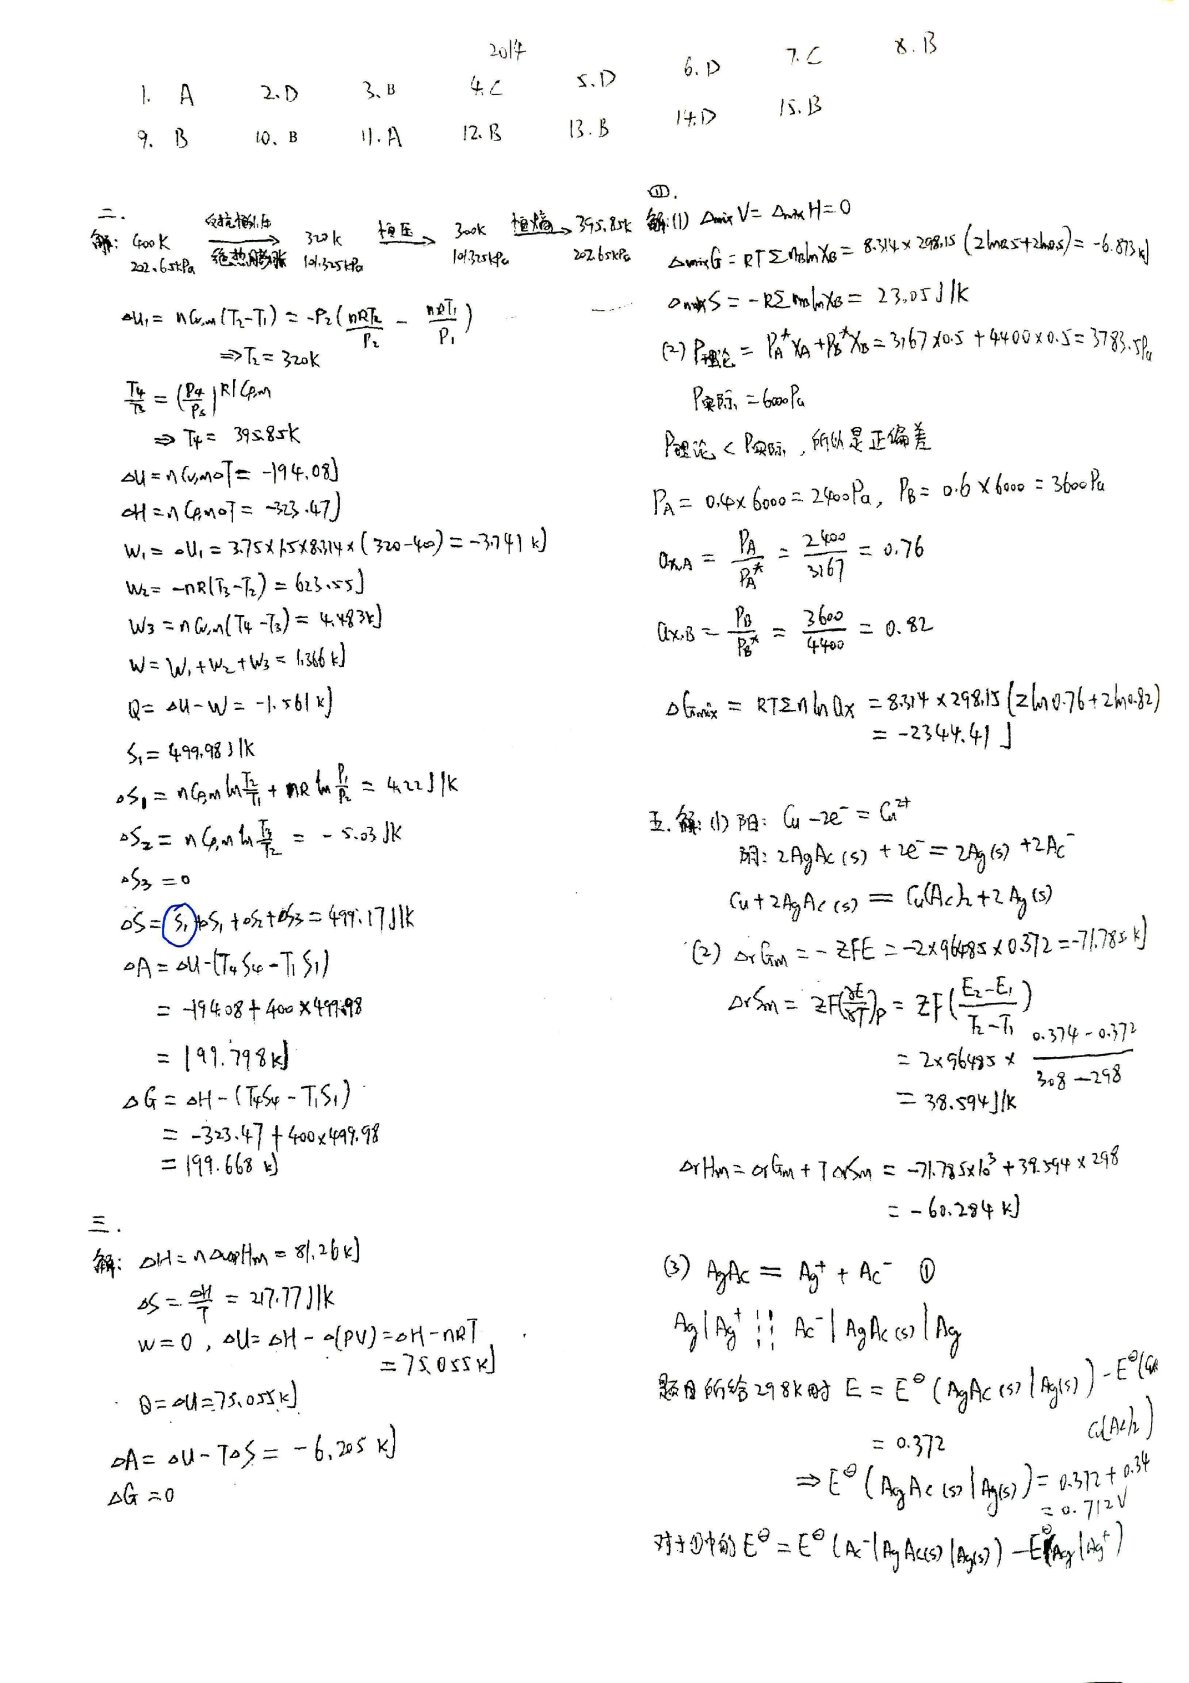 2014
1. A 2. D 3. B 4. C 5. D 6. D 7. C 8. B
9. B 10. B 11. A 12. B 13. B 14. D 15. B
二.
解: 400K 反抗恒外压 绝热膨胀 → 320K 恒压 → 300K 恒熵 → 395.85K
202.65kPa 101.325kPa 101.325kPa 202.65kPa
ΔU₁ = nCv,m(T₂-T₁) = -P₂(nRT₂/P₂ - nRT₁/P₁)
⇒T₂ = 320K
T₄/T₃ = (P₄/P₃)^R/Cp,m
⇒ T₄ = 395.85K
ΔU = nCv,mΔT = -194.08J
ΔH = nCp,mΔT = -323.47J
W₁ = ΔU₁ = 3.75×1.5×8.314×(320-400) = -3.741kJ
W₂ = -nR(T₃-T₂) = 623.55J
W₃ = nCv,m(T₄-T₃) = 4.483kJ
W = W₁+W₂+W₃ = 1.366kJ
Q = ΔU-W = -1.561kJ
S₁ = 499.98J/K
ΔS₁ = nCp,m ln T₂/T₁ + nR ln P₁/P₂ = 4.22J/K
ΔS₂ = nCp,m ln T₃/T₂ = -5.03J/K
ΔS₃ = 0
ΔS = S₁+ΔS₁+ΔS₂+ΔS₃ = 499.17J/K
ΔA = ΔU-(T₄S₄-T₁S₁)
= -194.08+400×499.98
= 199.798kJ
ΔG = ΔH-(T₄S₄-T₁S₁)
= -323.47+400×499.98
= 199.668kJ
三.
解: ΔH = nΔvapHm = 81.26kJ
ΔS = ΔH/T = 217.77J/K
W=0, ΔU = ΔH-Δ(PV) = ΔH-nRT
= 75.055kJ
Q = ΔU = 75.055kJ
ΔA = ΔU-TΔS = -6.205kJ
ΔG = 0
四.
解:(1) ΔmixV = ΔmixH = 0
ΔmixG = RTΣnBlnXB = 8.314×298.15(2ln0.5+2ln0.5) = -6.873kJ
ΔmixS = -RΣnBlnXB = 23.05J/K
(2) P理论 = PA*XA+PB*XB = 3167×0.5+4400×0.5 = 3783.5Pa
P实际 = 6000Pa
P理论 < P实际, 所以是正偏差
PA = 0.4×6000 = 2400Pa, PB = 0.6×6000 = 3600Pa
ax,A = PA/PA* = 2400/3167 = 0.76
ax,B = PB/PB* = 3600/4400 = 0.82
ΔGmix = RTΣn ln ax = 8.314×298.15(2ln0.76+2ln0.82)
= -2344.41J
五.解:(1) 阳: Cu-2e⁻ = Cu²⁺
阴: 2AgAc(s)+2e⁻ = 2Ag(s)+2Ac⁻
Cu+2AgAc(s) = Cu(Ac)₂+2Ag(s)
(2) ΔrGm = -ZFE = -2×96485×0.372 = -71.785kJ
ΔrSm = ZF(∂E/∂T)P = ZF(E₂-E₁/T₂-T₁)
= 2×96485× 0.374-0.372/308-298
= 38.594J/K
ΔrHm = ΔrGm+TΔrSm = -71.785×10³+39.594×298
= -60.284kJ
(3) AgAc = Ag⁺+Ac⁻ ①
Ag|Ag⁺ ¦¦ Ac⁻|AgAc(s)|Ag
题目所给298K时 E = E⊖(AgAc(s)|Ag(s))-E⊖(Cu
Cu(Ac)₂)
= 0.372
⇒E⊖(AgAc(s)|Ag(s)) = 0.372+0.34
= 0.712V
对于①中的E⊖ = E⊖(Ac⁻|AgAc(s)|Ag(s))-E⊖(Ag|Ag⁺)